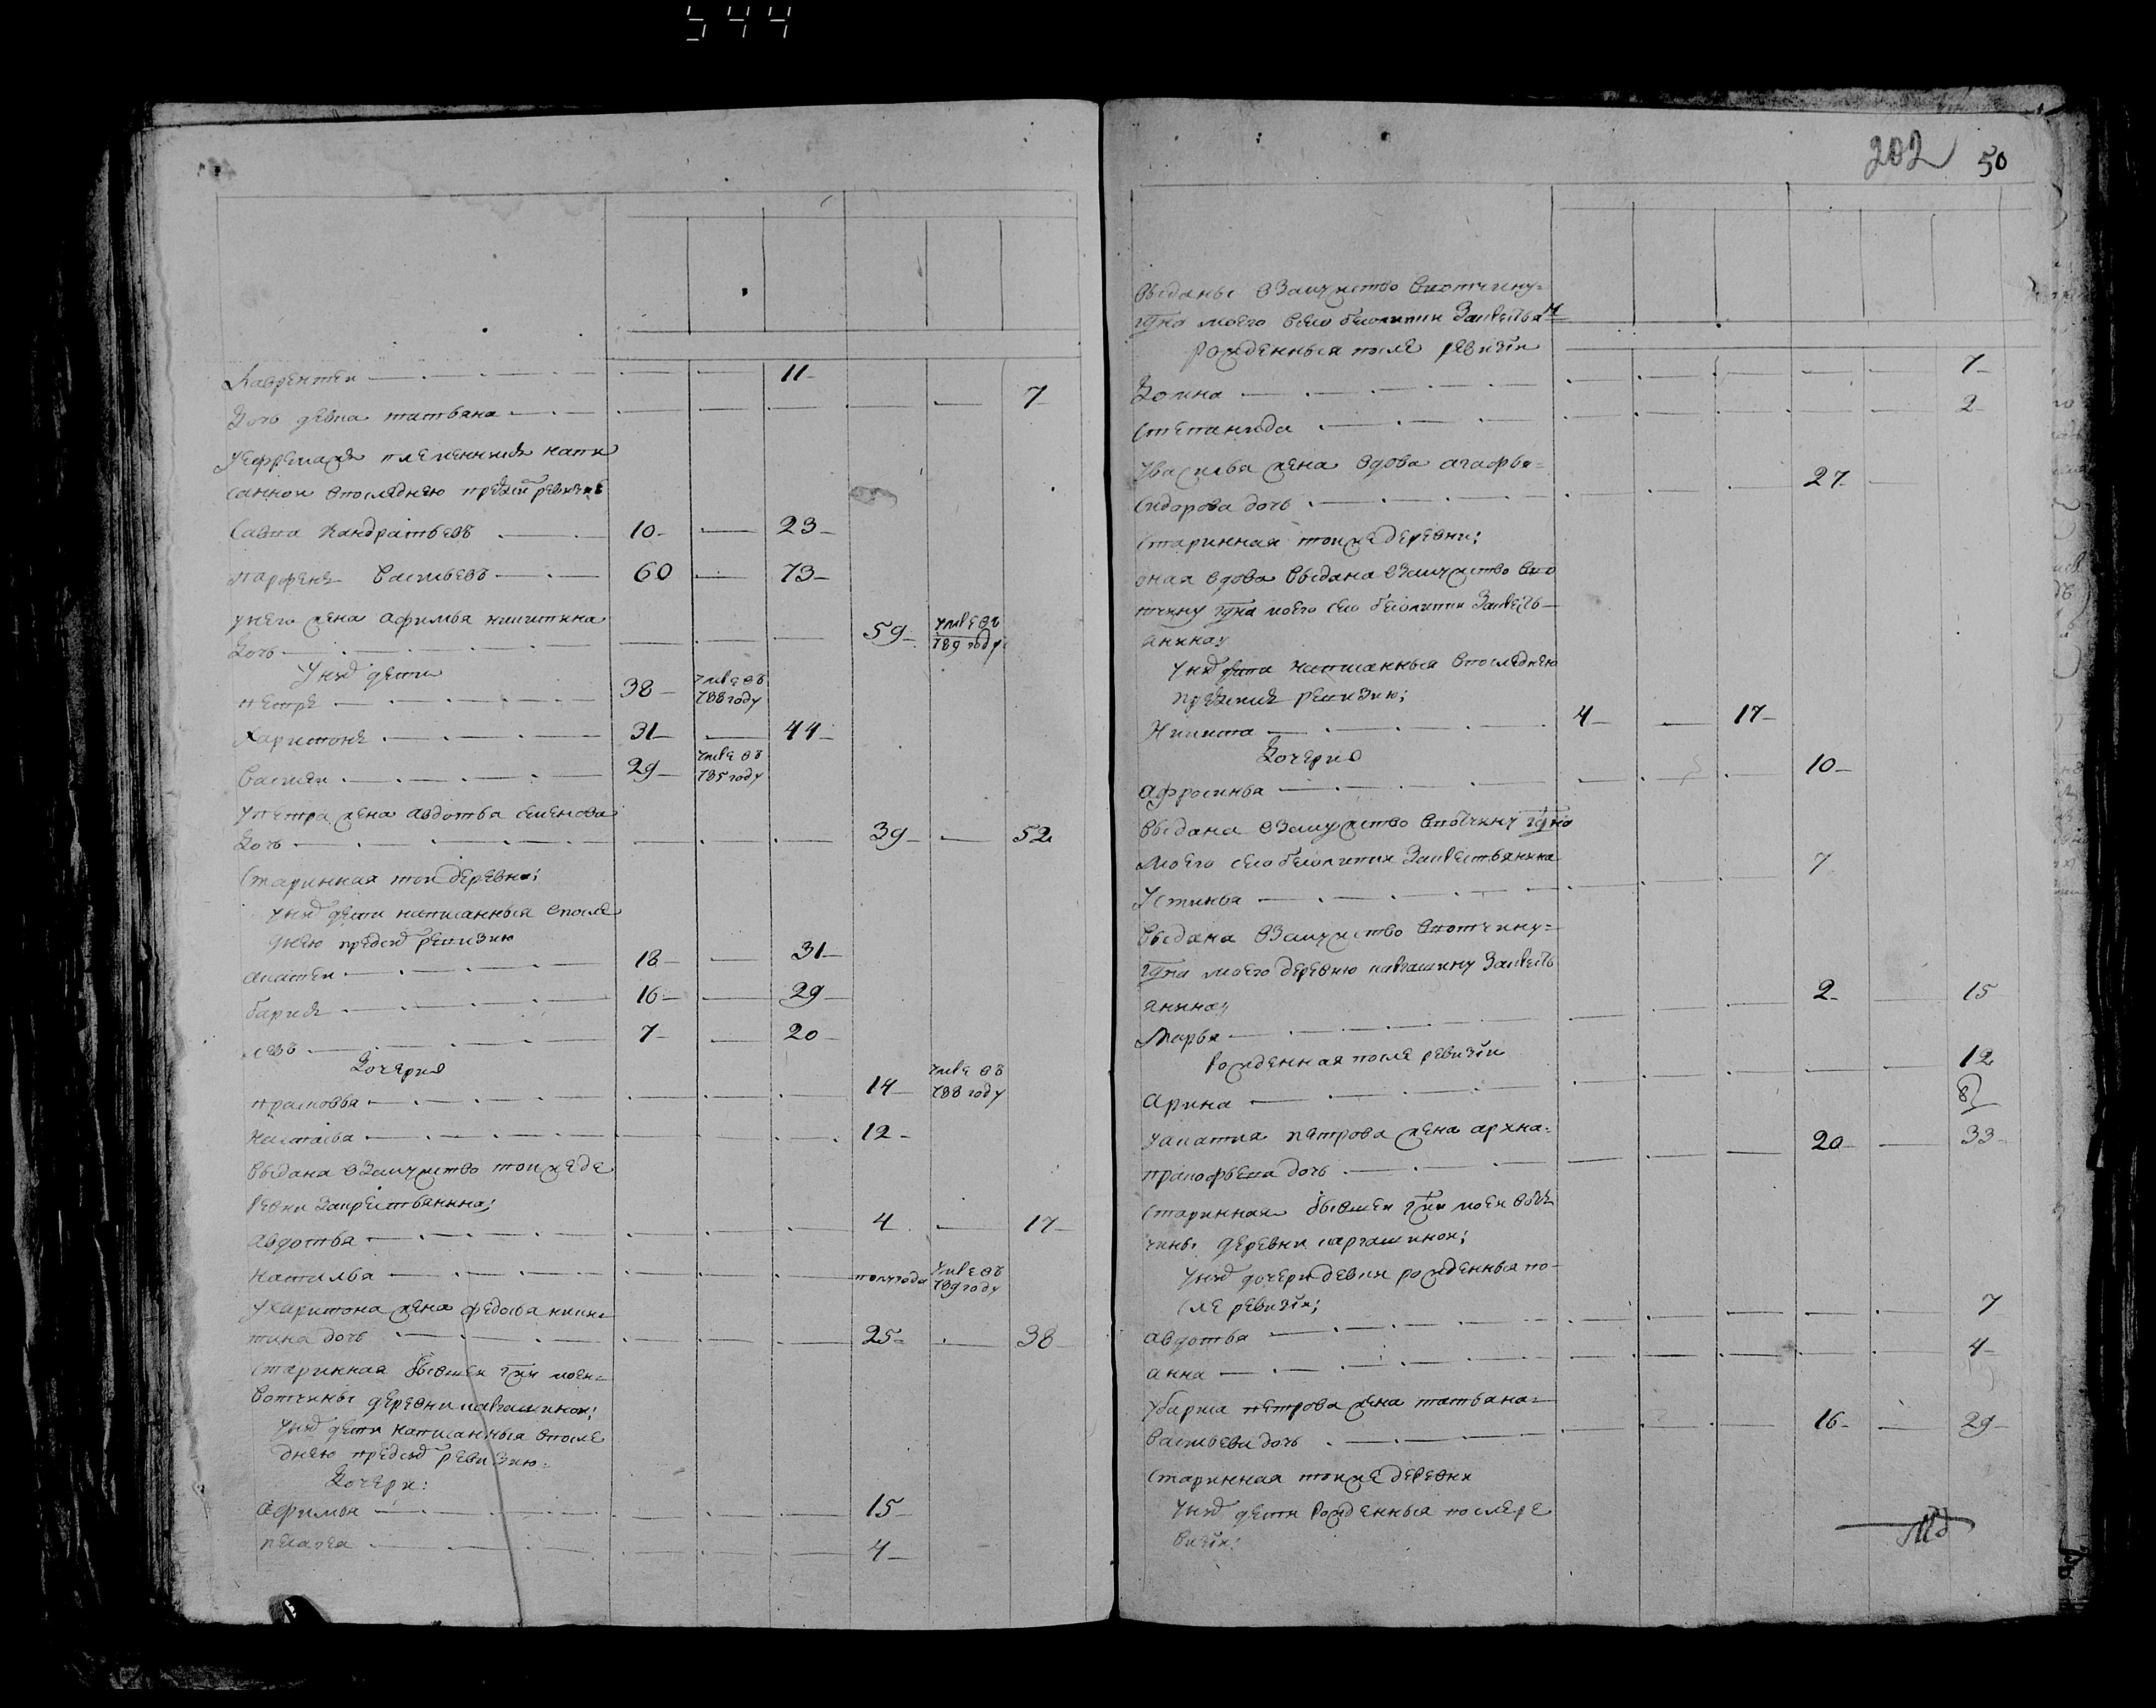 544
Лаврентеи 11
Дочь девка татьяна 7
уефремаже племянникъ напи
саннои впоследнею пред ревизию
Савва Кандратьевъ 10 23
парфенъ Васильевъ 60 73
унего жена афимья никитина
Дочь 59 умре въ 789 году
У них дети
петръ 38 умре въ 788 году
Харитонъ 31 44
Василеи 29 умре въ 785 году
упетра жена авдотья семенова
Дочь 39 52
Старинная тои деревни;
у них дети написанныя впосле
днею пред ревизию
ипатеи 18 31
барисъ 16 29
левъ 7 20
Дочери
прасковья 14 умре въ 788 году
Настасья 12
выдана взамужство тоижеде
ревни закрестьянина;
авдотья 4 17
Наталья полугода умре въ 789 году
ухаритона жена федосья ники
тина дочь 25 38
Старинная бывшеи гжи моеи
вотчины деревни
у них дети написанныя впосле
днею пред ревизию:
Дочери:
Афимья 15
пелагея 4
202 50
выданы взамужство ввотчину
гдна моего село закрестьян
рожденныя после ревизiи
Домна 7
Степанида 2
Увасилья жена вдова агафья
Сидорова дочь 27
Старинная тоиже деревни;
оная вдова выдана взамужство вво
тчину гдна моего село закресть
янина;
у них дети написанныя впоследнею
ревизию;
Никита 4 17
Дочери
Афросинья 10
выдана взамужство ввотчину гдна
Моего село закрестьянина
Устинья 7
выдана взамужство ввотчину
гдна моего деревню закресть
янина;
Марья 2 15
рожденная после ревизiи
Арина 12
8
уипатиа петрова жена
прокофьева дочь 20 33
Старинная бывшеи гжи моеи вот
чины деревни
у них дочери девки рожденныя по
сле ревизiи;
авдотья 7
анна 4
убариса петрова жена татьяна
Васильева дочь 16 29
Старинная тоиже деревни
у них дети рожденныя послере
визiи: